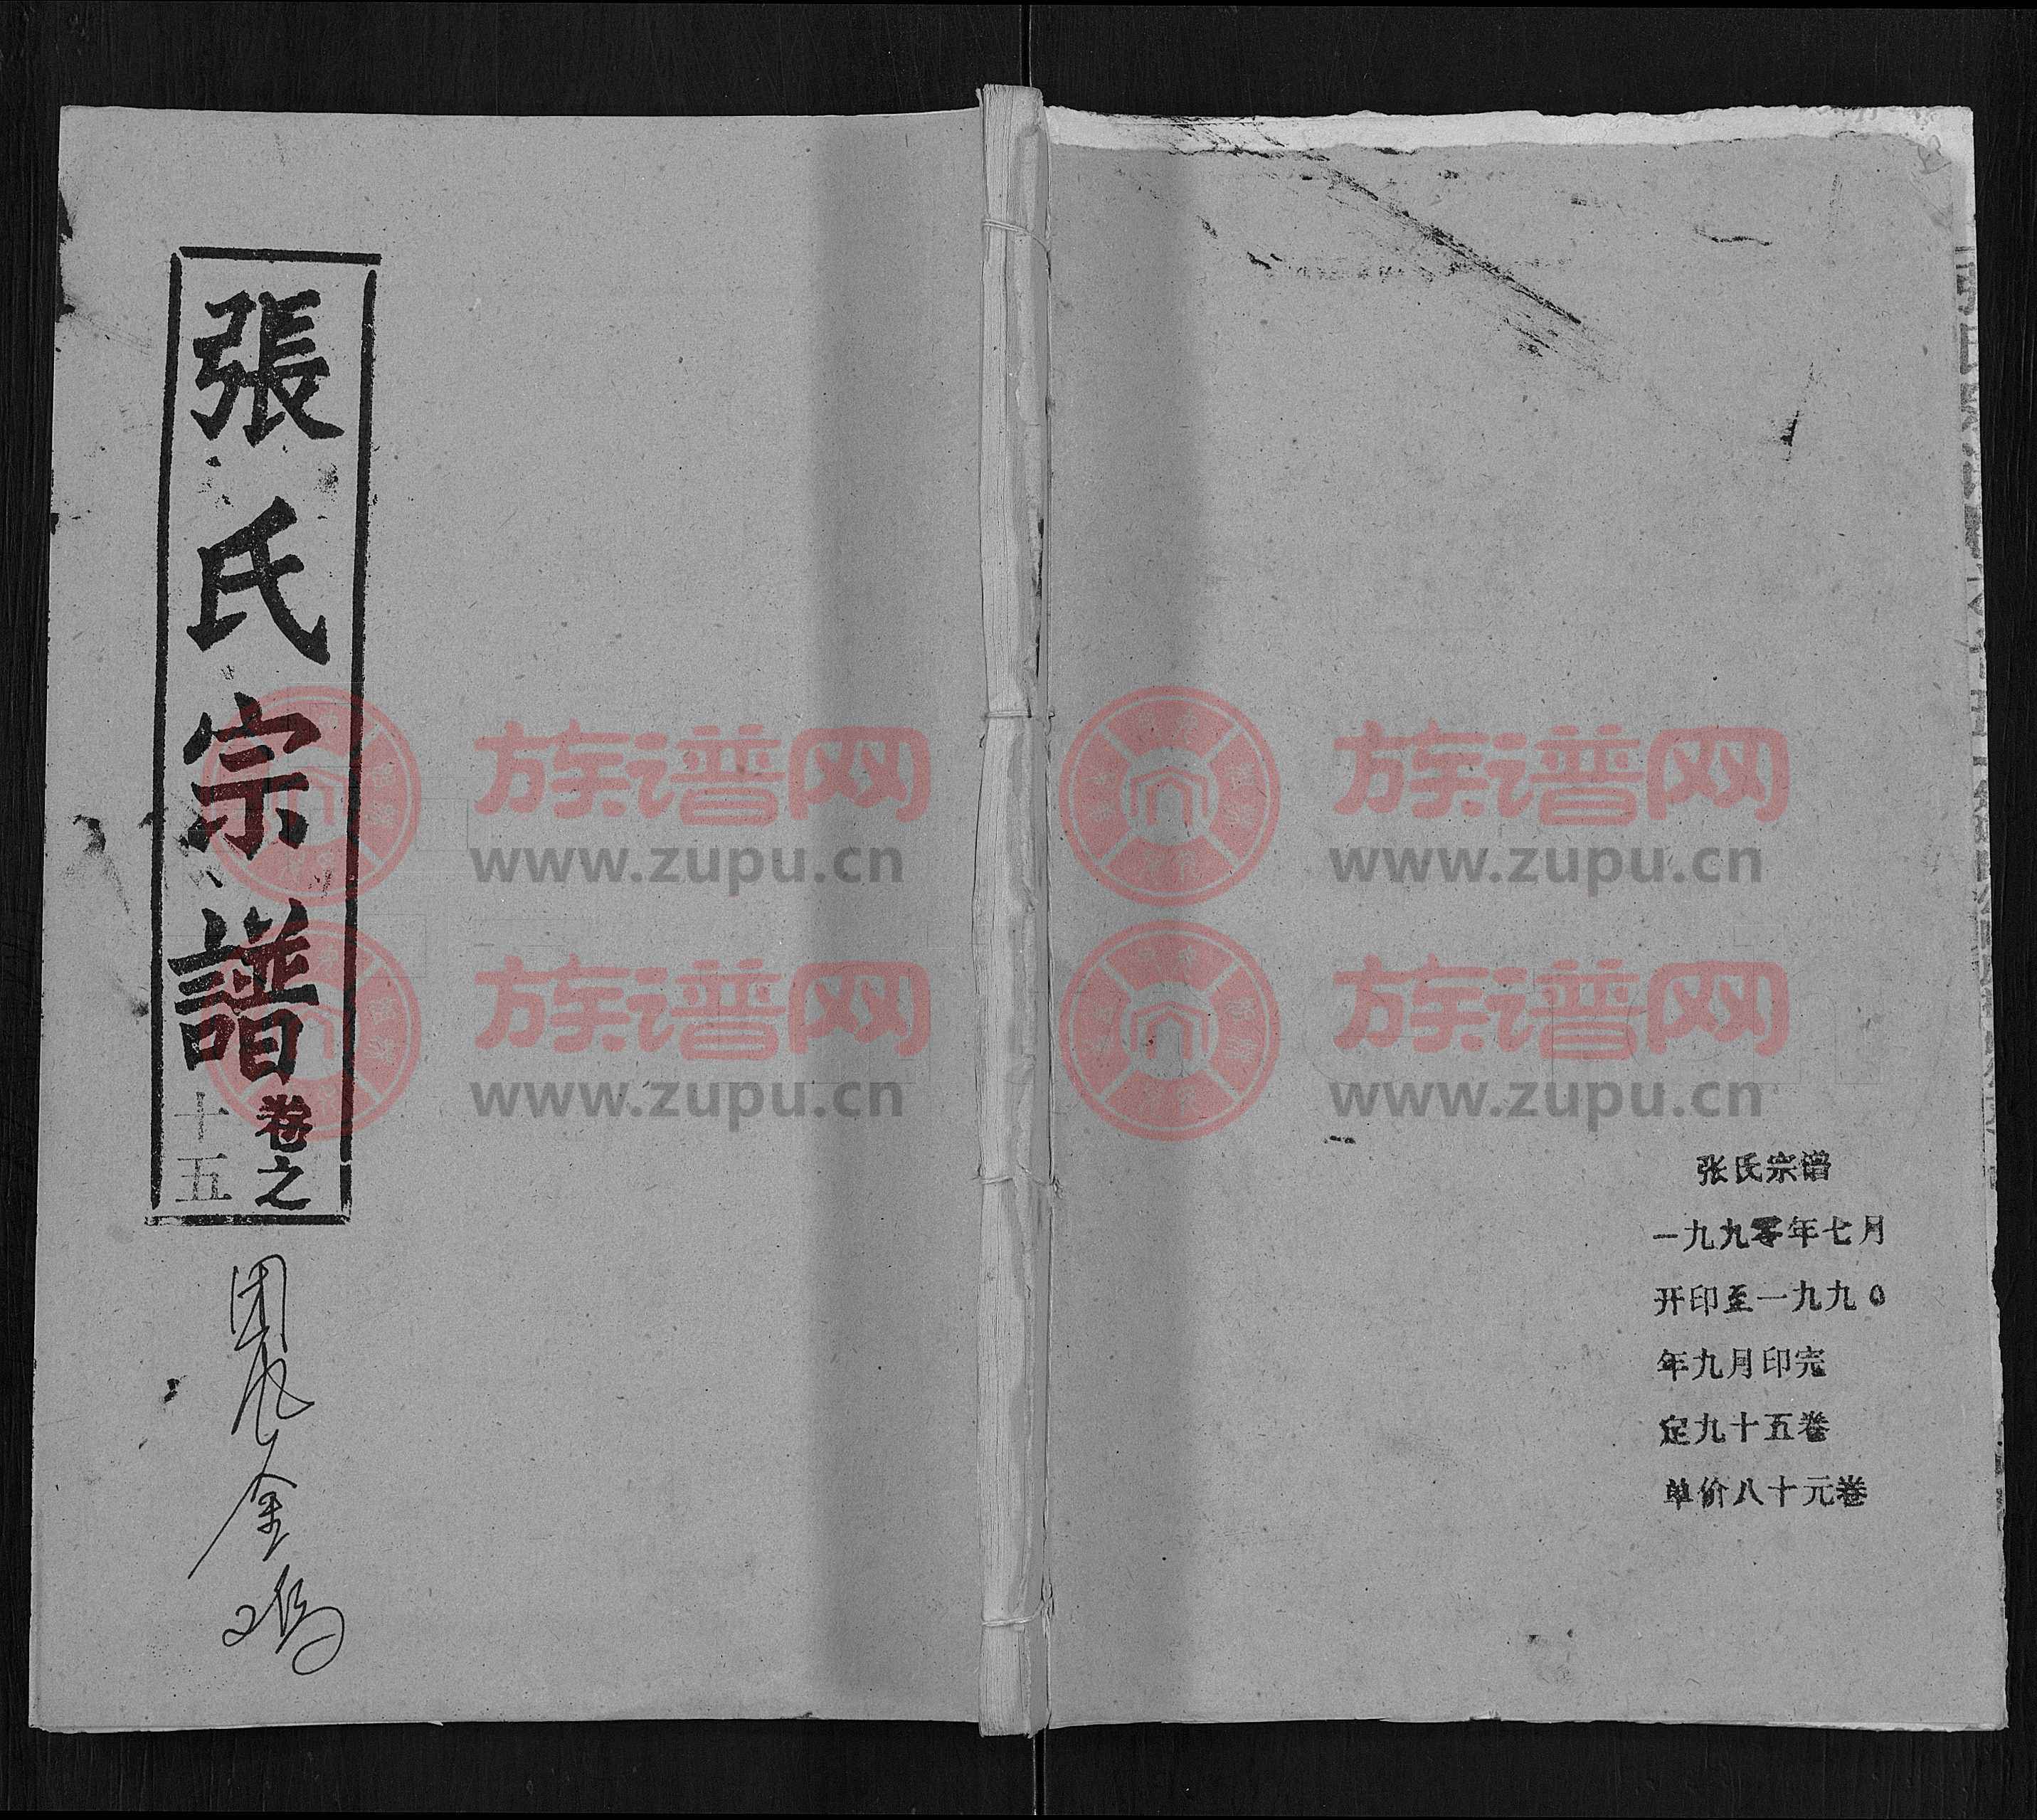 張氏宗譜
卷之
十五
张氏宗谱
一九九零年七月
开印至一九九0
年九月印完
定九十五卷
单价八十元卷
族谱网
www.zupu.cn
族谱网
www.zupu.cn
族谱网
www.zupu.cn
族谱网
www.zupu.cn